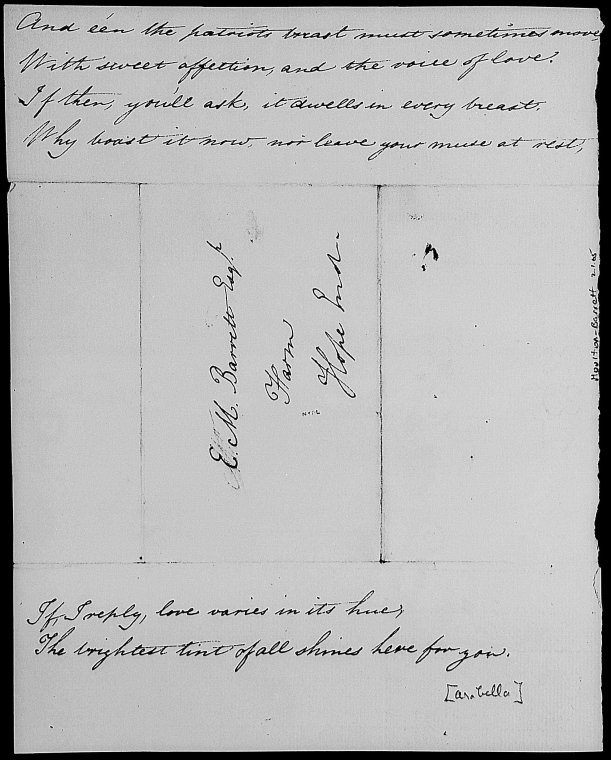 And e'en the patriots breast must sometimes move,
With sweet affection, and the voice of love!
If then, you'll ask, it dwells in every breast,
Why boast it now, nor leave your muse at rest,
E. M. Barrett Esqr.
Farm
Hope End.
Moulton-Barrett
If, I reply, love varies in its hue,
The brightest tint of all shines here for you.
[Arabella]